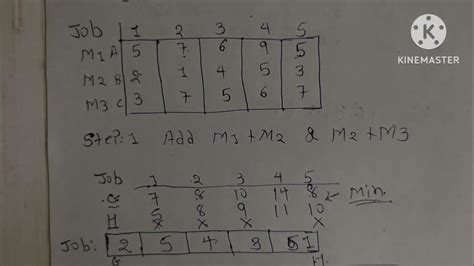 Job 1 2 3 4 5
M1 A 5 7 6 9 5
M2 B 2 1 4 5 3
M3 C 3 7 5 6 7
KINEMASTER
Step:1 Add M1+M2 & M2+M3
Job 1 2 3 4 5
G 7 8 10 14 8 Min.
H 5 8 9 11 10
x x x x
Job: 2 5 4 3 1
G H